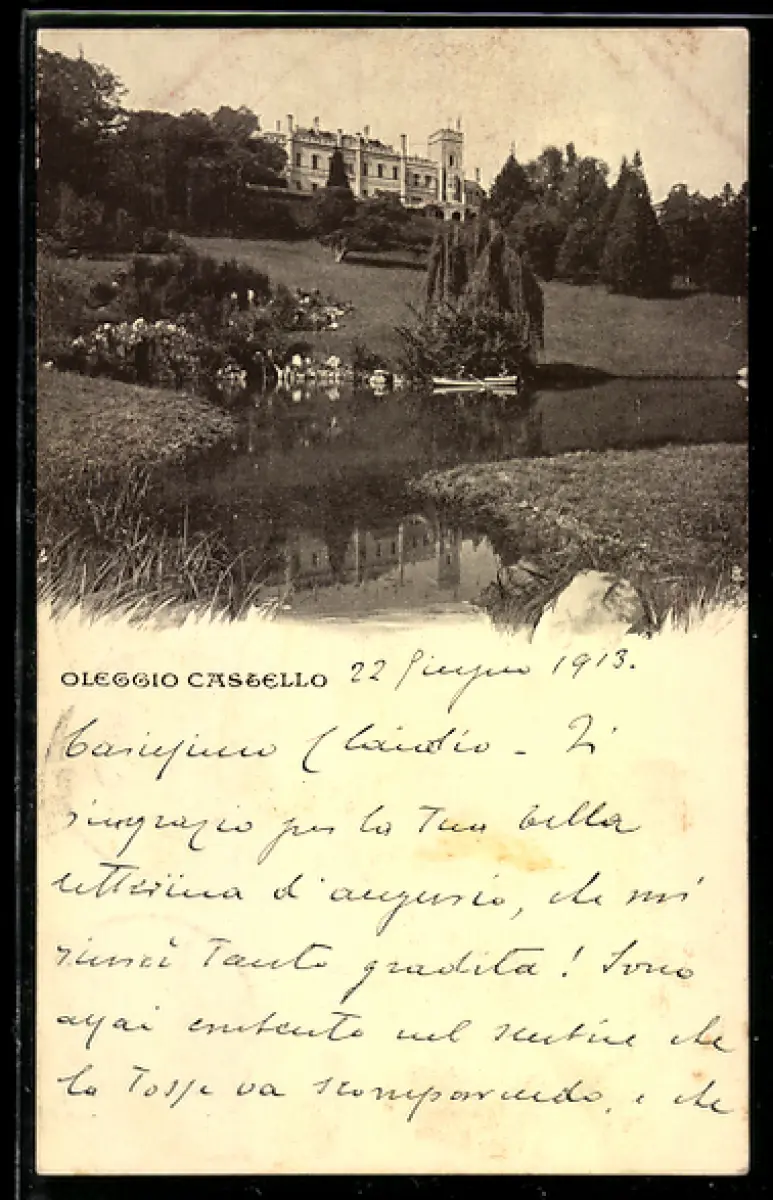 OLEGGIO CASTELLO 22 Giugno 1913.
Carissimo Claudio - Ti
ringrazio per la Tua bella
letterina d'augurio, che mi
riuscì Tanto gradita! Sono
assai contento nel sentire che
la Tosse va scomparendo, e che